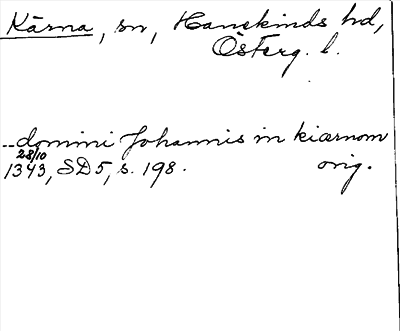 Kärna, sn, Hanekinds hd,
Österg. l.
--domini Johannis in kiærnom
28/10
1343, SD5, s. 198. orig.